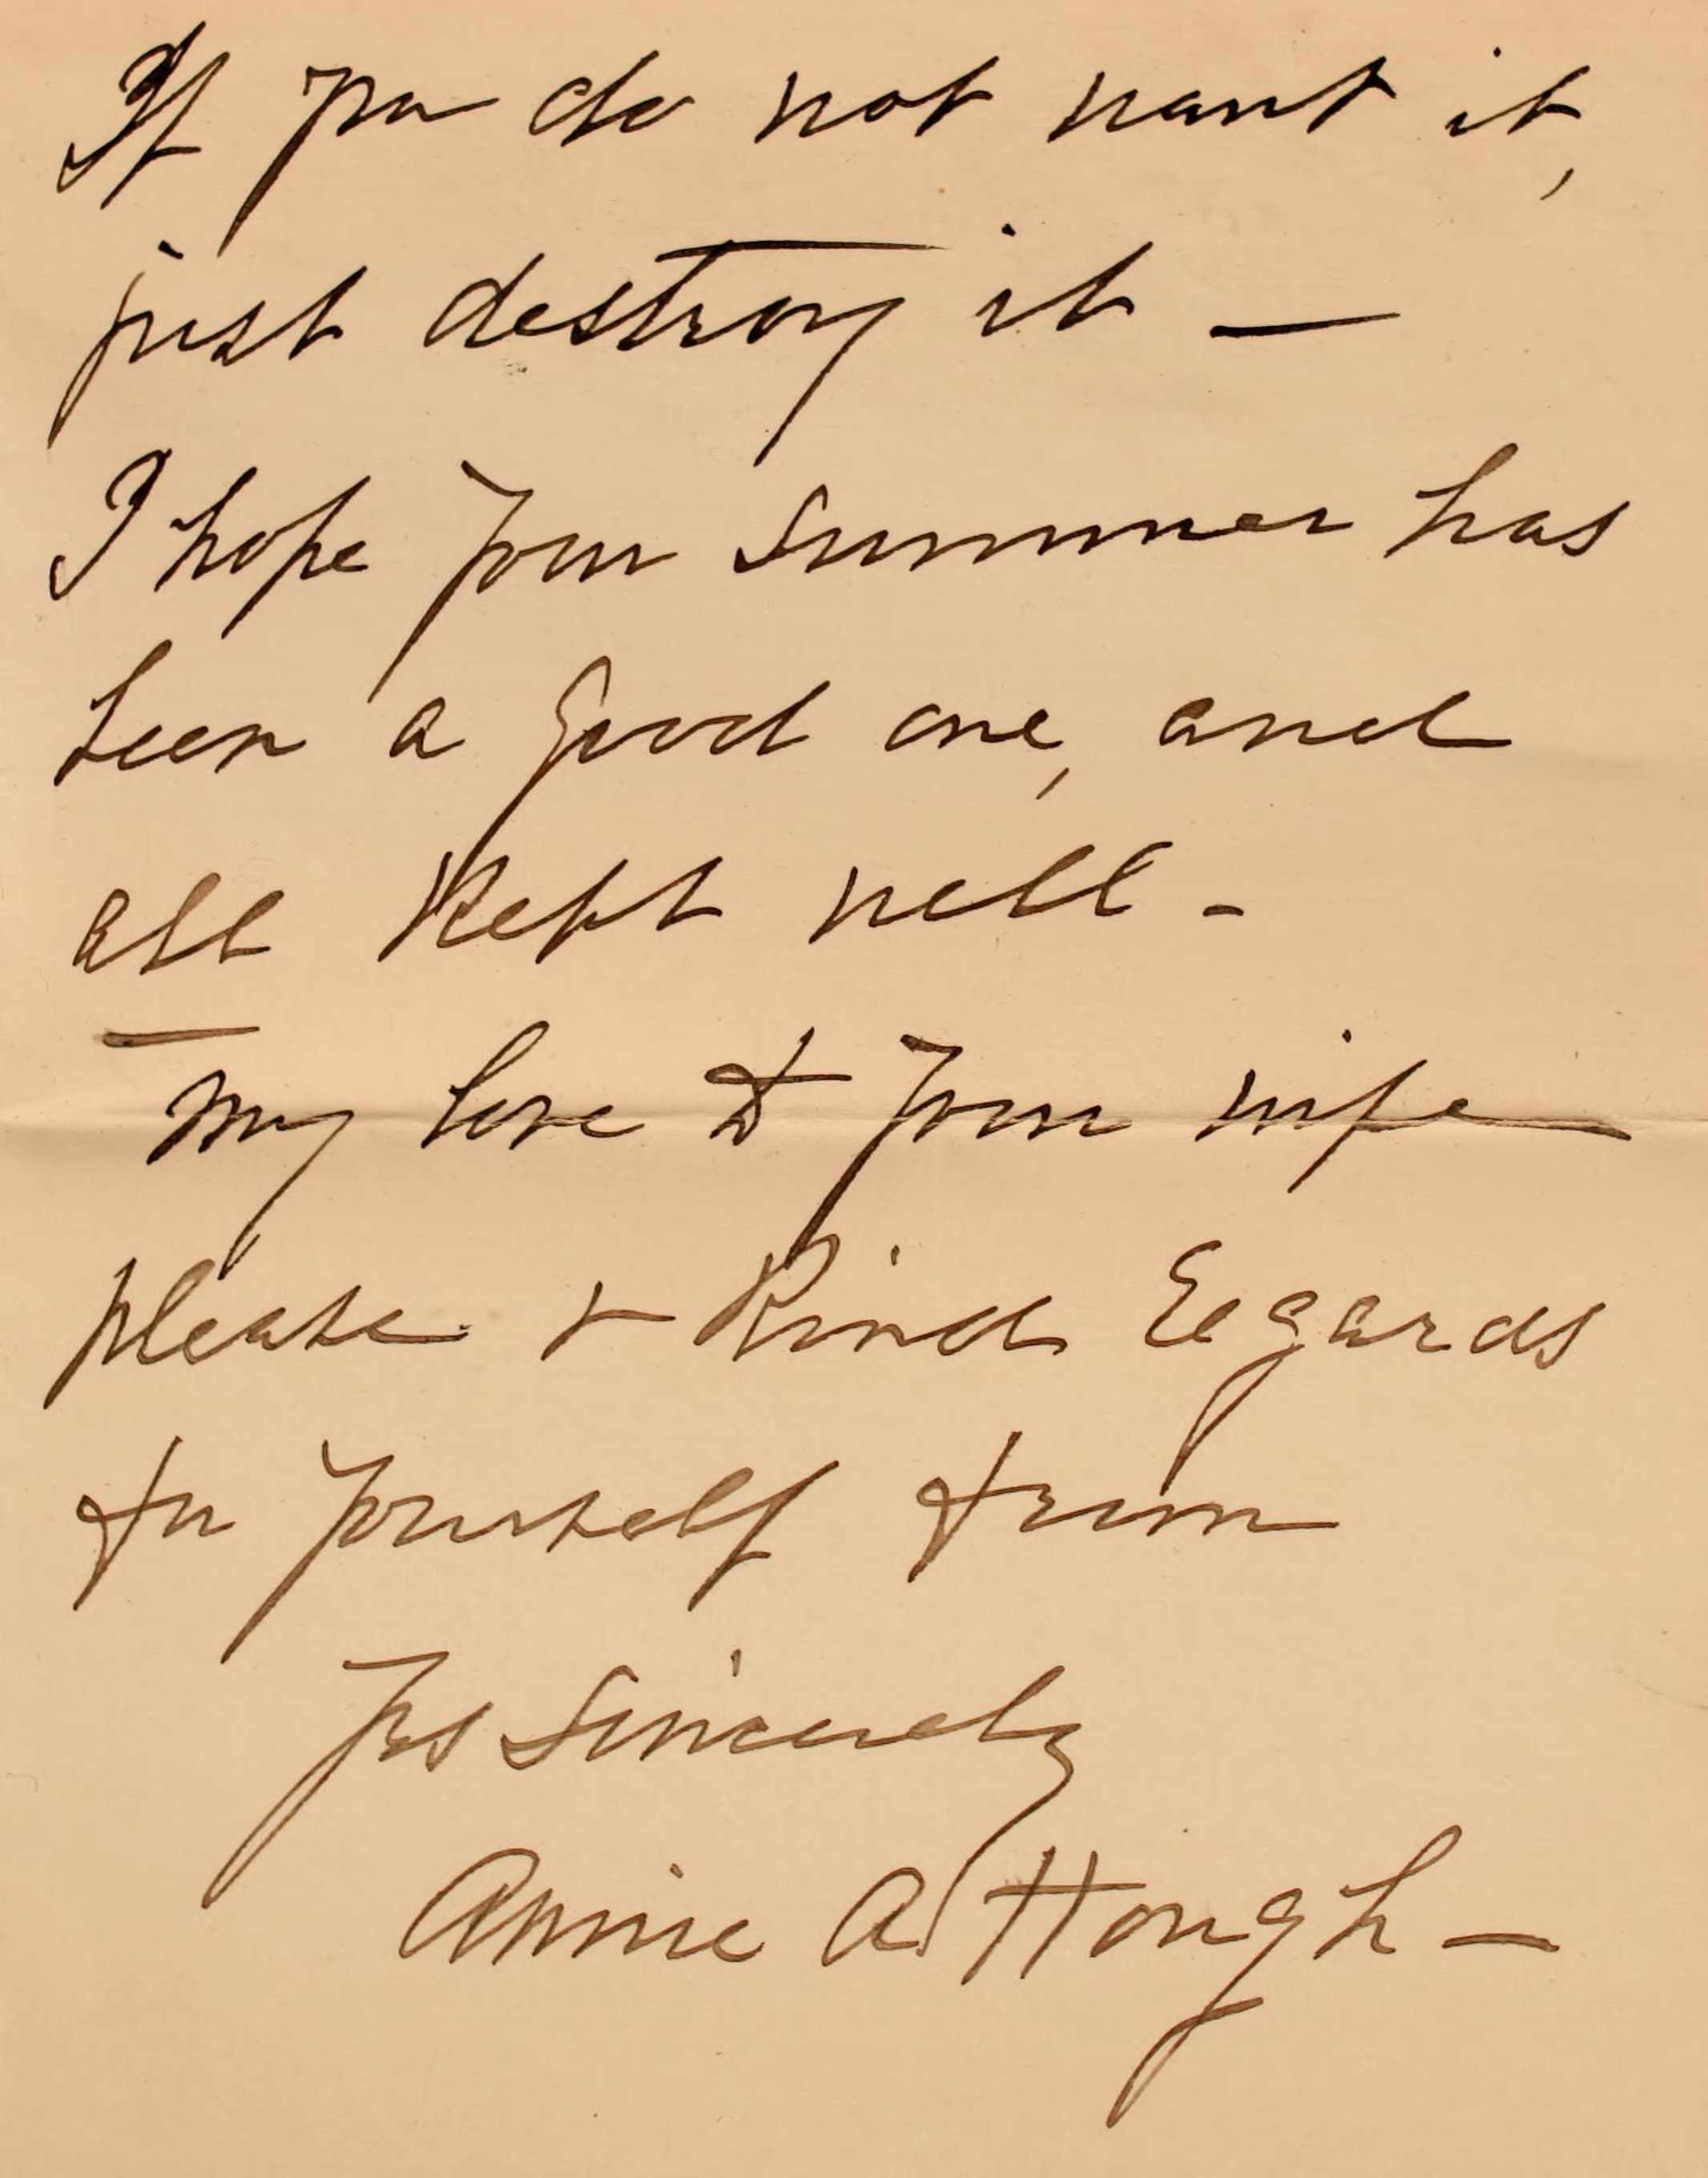 If you do not want it,
just destroy it —
I hope your summer has
been a good one, and
all kept well -
— My love to your wife
please & kind regards
for yourself from
Yrs Sincerely
Annie A. Hough —